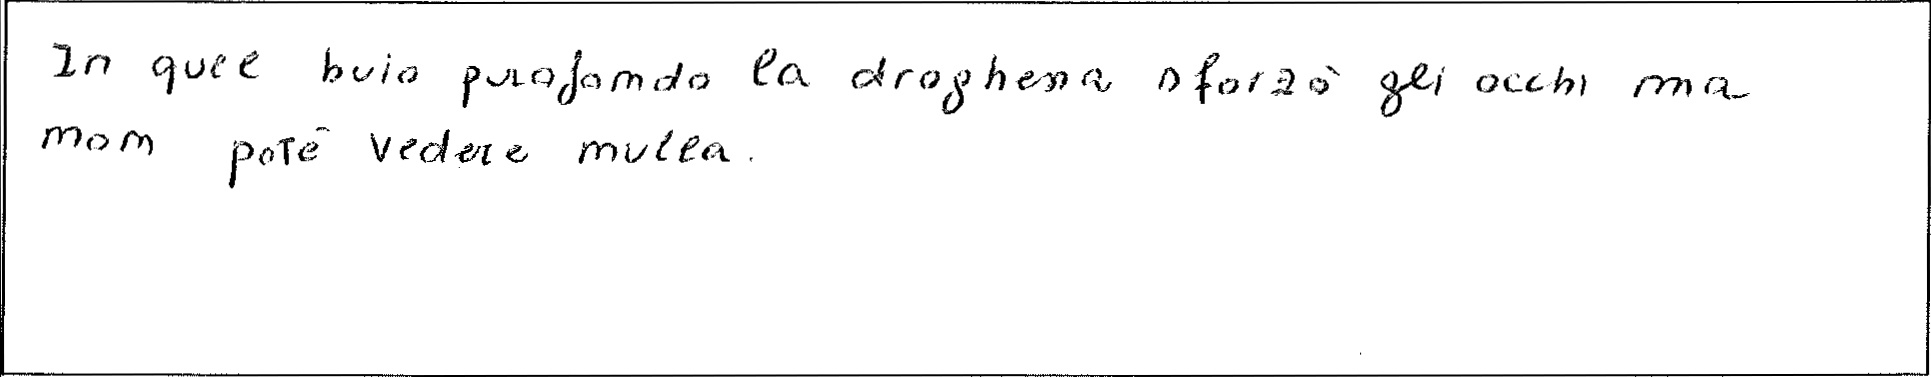 In quel buio profondo la droghena sforzò gli occhi ma
non poté vedere nulla.